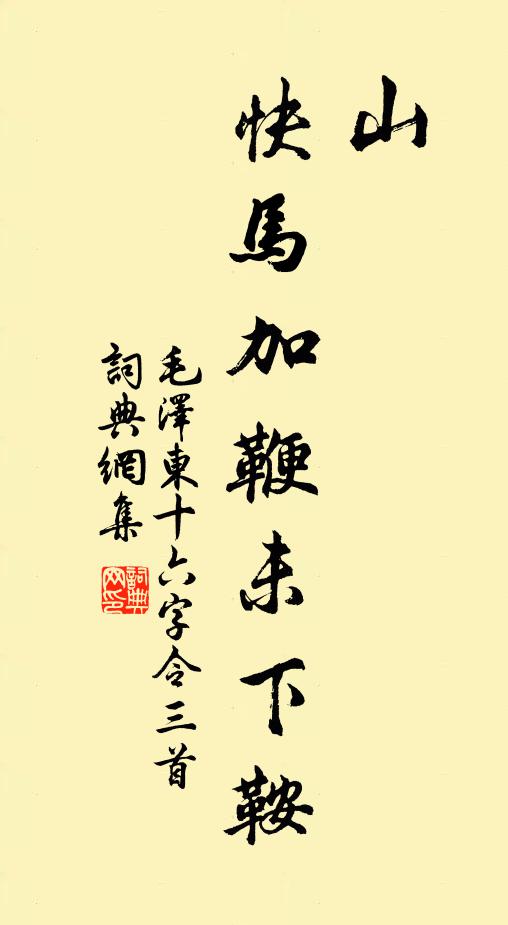 山
快馬加鞭未下鞍
毛澤東十六字令三首
詞典網集
詞典
网印